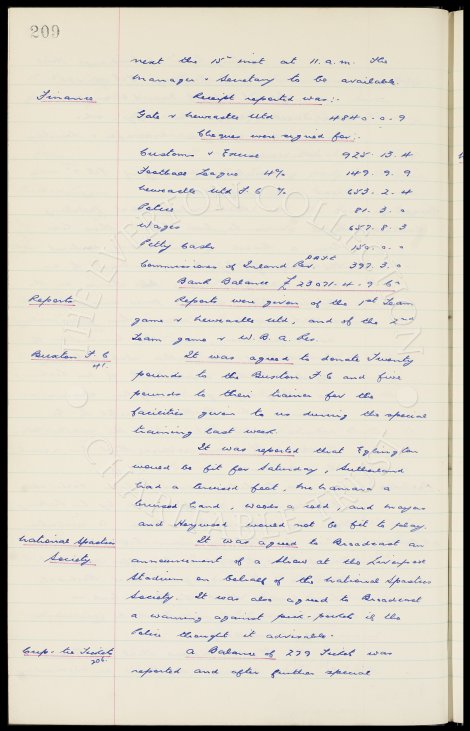 209
next the 15th inst at 11. a.m. The
Manager & Secretary to be available.
Finance
Receipt reported was:-
Gate v Newcastle Utd 4840 - 0 - 9
Cheques were signed for:-
Customs & Excise 925 - 13. 4
Football League 4% 149. 9. 9
Newcastle Utd F. C % 653 - 2. 4
Police 81. 3. 0
Wages 657. 8. 3
Petty Cash 150. 0. 0
Commissioners of Inland Rev. PAYE 397. 3. 0
Bank Balance £ 23071. 4. 9 Cr
Reports
Reports were given of the 1st Team
game v Newcastle Utd, and of the 2nd
Team game v W. B. A. Res.
Buxton F. C
It was agreed to donate Twenty
pounds to the Buxton F. C and five
pounds to their trainer for the
facilities given to us during the special
training last week.
It was reported that Eglington
would be fit for Saturday, Sutherland
had a bruised foot, McNamara a
bruised hand, Woods a cold, and Mayers
and Haywood would not be fit to play.
National Spastics
Society
It was agreed to Broadcast an
announcement of a Show at the Liverpool
Stadium on behalf of the National Spastics
Society. It was also agreed to Broadcast
a warning against pick-pockets if the
Police thought it advisable.
Cup-tie Tickets
A Balance of 279 Tickets was
reported and after further special
THE EVERTON COLLECTION
CHARITABLE TRUST